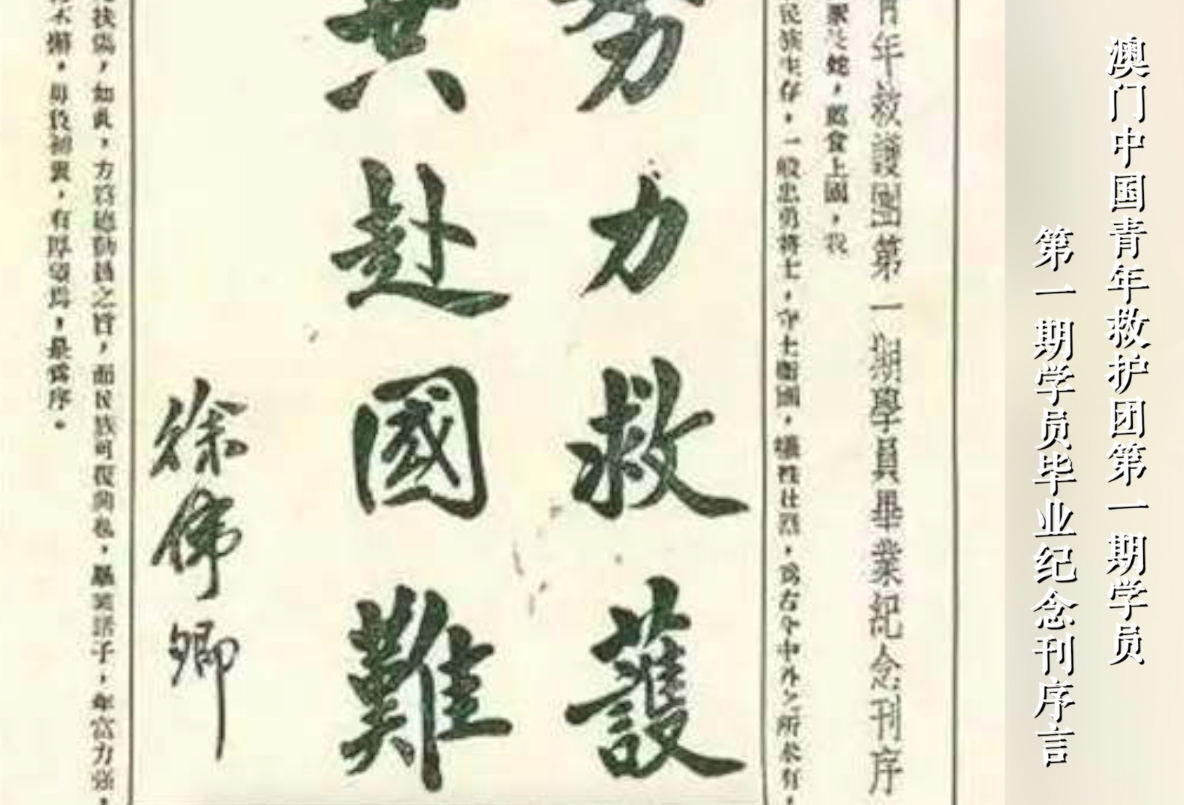 澳门中国青年救护团第一期学员
第一期学员毕业纪念刊序言
青年救護團第一期學員畢業紀念刊序
蛇，薦食上國，我
民族生存，一般忠勇將士，守土衛國，犧牲壯烈，為古今中外之所未有，
努力救護
共赴國難
徐偉卿
扶傷，如此，方為
之旨，而民族可復興也，
子，年富力強，
不懈，毋負初衷，有厚望焉，是為序。